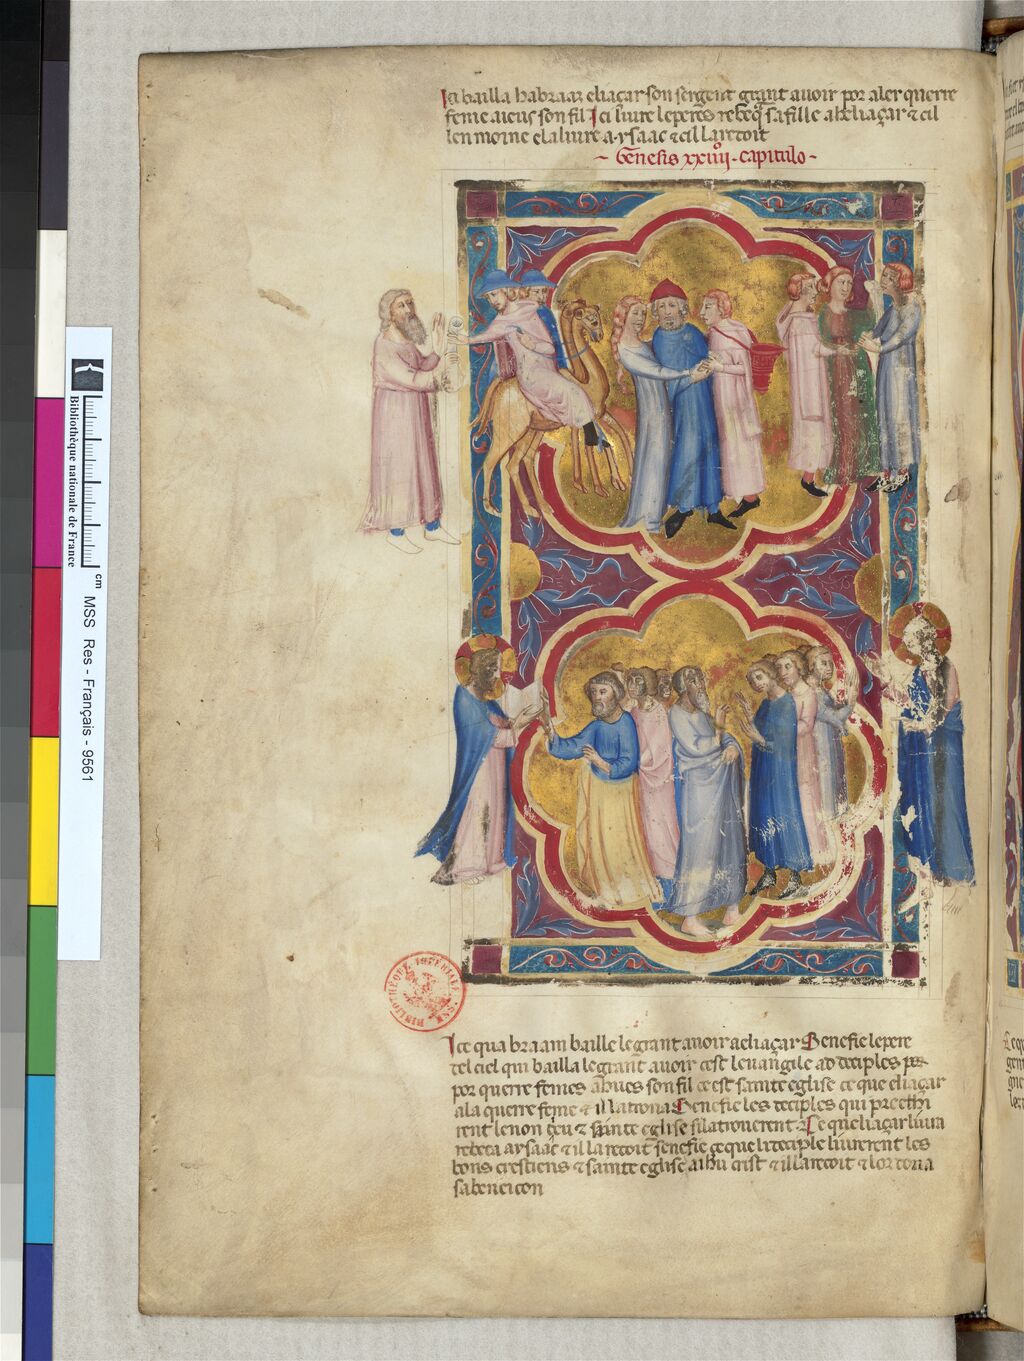 Ici bailla habraaz eliaçar son sergent grant auoir por aler querre
feme aieus son fil Ici liure leperes rebeq̄ sa fille abeliaçar ⁊ cil
len moine ⁊ la liure a ysaac ⁊ cil la recoit
~ Genesis xxiiij · capitulo ~
Ice qua braam baille le grant auoir a eliaçar Senefie le pere
del ciel qui bailla le grant auoir cest leuangile as deciples
por querre femes a ihus son fil ce est sainte eglise ce que eliaçar
ala querre feme ⁊ il la trona Senefie les deciples qui preechi
rent le non deu ⁊ sainte eglise si la trouerent Ce que liaçar liura
rebeca a ysaac ⁊ il la recoit senefie ce que li deciple liurerent les
bons crestiens ⁊ sainte eglise a ihu crist ⁊ il la recoit ⁊ lor dona
sa beneicon
BIBLIOTHÈQUE IMPÉRIALE MSS
Bibliothèque nationale de France
cm
MSS Res - Français - 9561